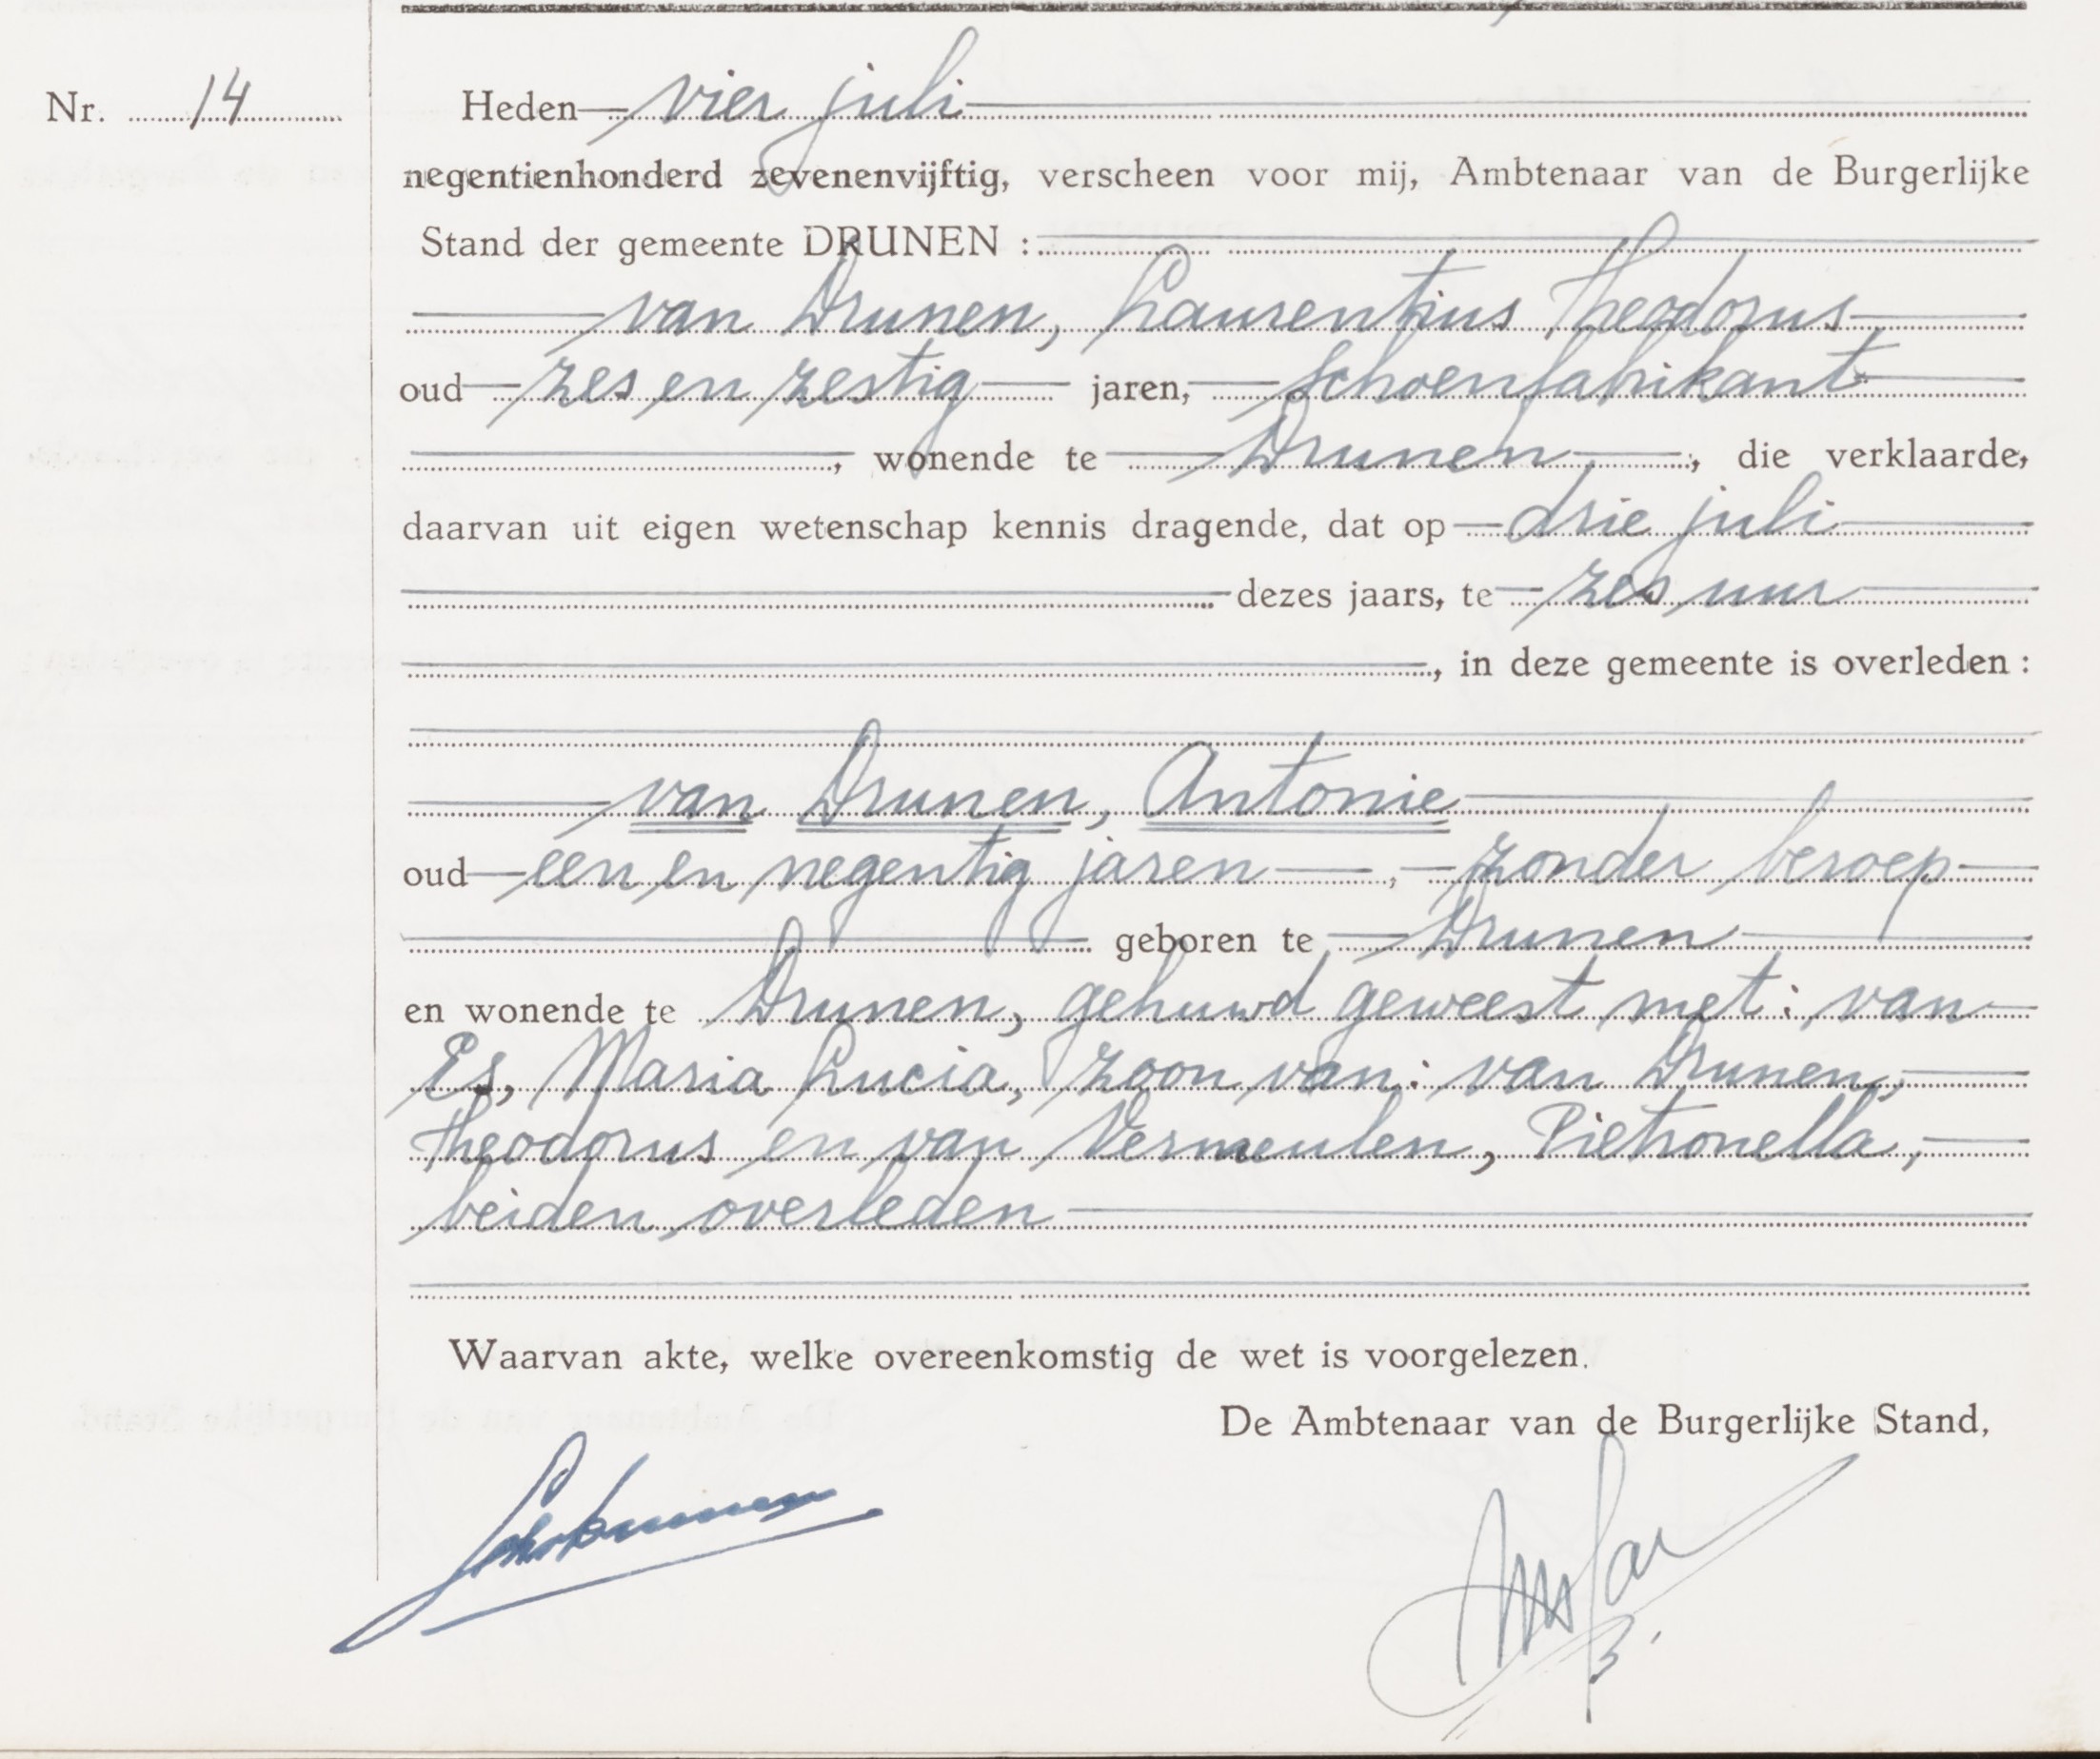 Nr. 14
Heden vier juli
negentienhonderd zevenenvijftig, verscheen voor mij, Ambtenaar van de Burgerlijke
Stand der gemeente DRUNEN :
van Drunen, Laurentius Theodorus
oud zes en zestig jaren, schoenfabrikant
, wonende te Drunen, die verklaarde,
daarvan uit eigen wetenschap kennis dragende, dat op drie juli
dezes jaars, te zes uur
, in deze gemeente is overleden :
van Drunen, Antonie
oud een en negentig jaren, zonder beroep
geboren te Drunen
en wonende te Drunen, gehuwd geweest met: van
Es, Maria Lucia, zoon van: van Drunen,
Theodorus en van Vermeulen, Pietronella,
beiden overleden
Waarvan akte, welke overeenkomstig de wet is voorgelezen.
De Ambtenaar van de Burgerlijke Stand,